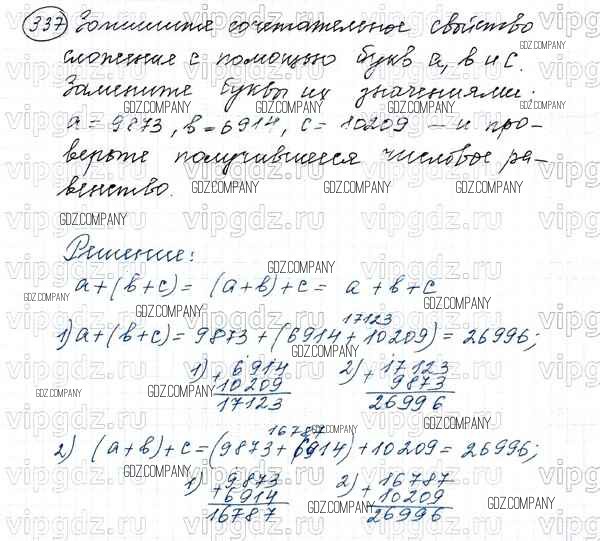 337 Запишите сочетательное свойство
сложения с помощью букв a, b и c.
Замените буквы их значениями:
a = 9873, b = 6914, c = 10209 — и про-
верьте получившееся числовое ра-
венство.
Решение:
a+(b+c) = (a+b)+c = a+b+c
17123
1) a+(b+c) = 9873 + (6914+10209) = 26996;
1) + 6914 2) + 17123
10209 9873
17123 26996
16787
2) (a+b)+c = (9873+6914)+10209 = 26996;
1) + 9873 2) + 16787
6914 10209
16787 26996
GDZ.COMPANY
vipgdz.ru